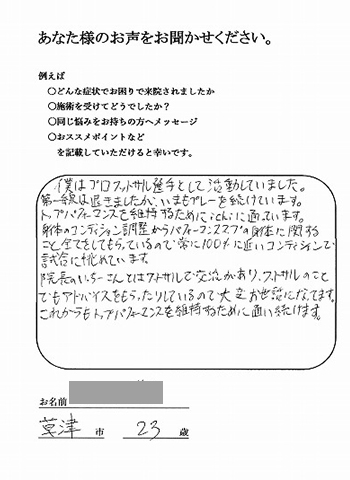 あなた様のお声をお聞かせください。
例えば
○どんな症状でお困りで来院されましたか
○施術を受けてどうでしたか？
○同じ悩みをお持ちの方へメッセージ
○おススメポイントなど
を記載していただけると幸いです。
僕はプロフットサル選手として活動していました。
第一線は退きましたが、いまもプレーを続けています。
トップパフォーマンスを維持するためにichiに通っています。
身体のコンディション調整からパフォーマンスアップの身体に関する
こと全てをしてもらっているので常に100%に近いコンディションで
試合に挑めています。
院長のいちーさんとはフットサルで交流があり、フットサルのこと
でもアドバイスをもらったりしているので大変お世話になってます。
これからもトップパフォーマンスを維持するために通い続けます。
お名前
草津 市 23 歳